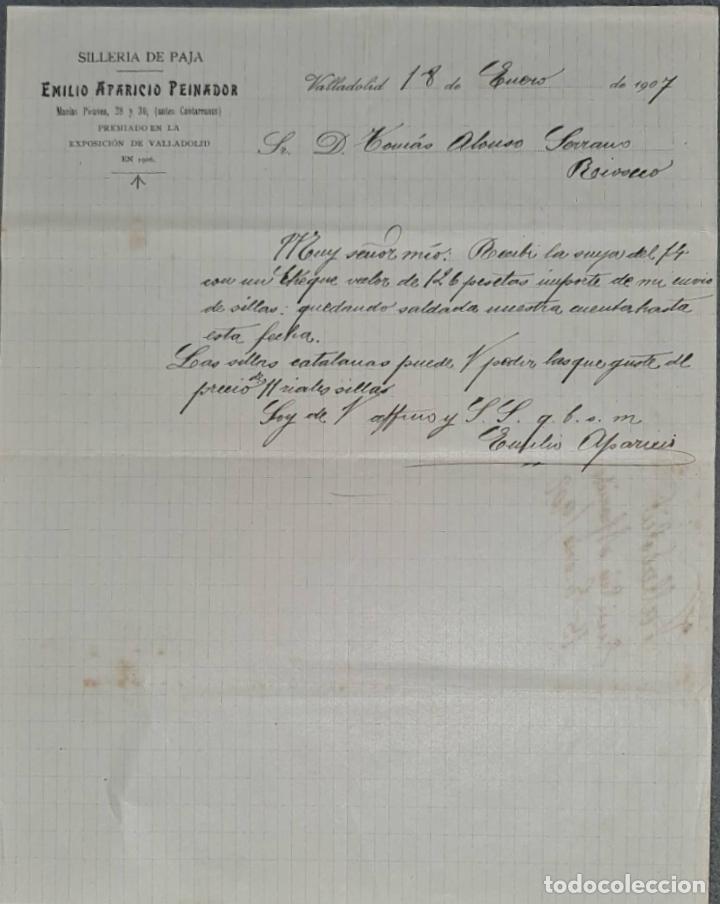 SILLERIA DE PAJA
EMILIO APARICIO PEINADOR
Macías Picavea, 28 y 30, (antes Cantarranas)
PREMIADO EN LA
EXPOSICIÓN DE VALLADOLID
EN 1906.
Valladolid 18 de Enero de 1907
Sr. D. Tomás Alonso Serrano
Rioseco
Muy señor mío: Recibí la suya del 14
con un Cheque valor de 126 pesetas importe de mi envio
de sillas: quedando saldada nuestra cuenta hasta
esta fecha.
Las sillas catalanas puede V pedir las que guste al
precio de 11 riales sillas
Soy de V affmo y S. S. q. b. s. m
Emilio Aparicio
todocoleccion
todocoleccion.net